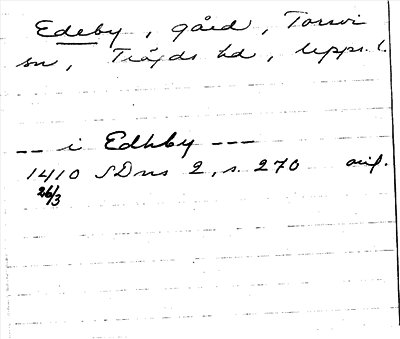 Edeby, gård, Torsvi
sn, Trögds hd, Upps. l.
-- i Edhby ---
1410 SDns 2, s. 270 avf.
26/3